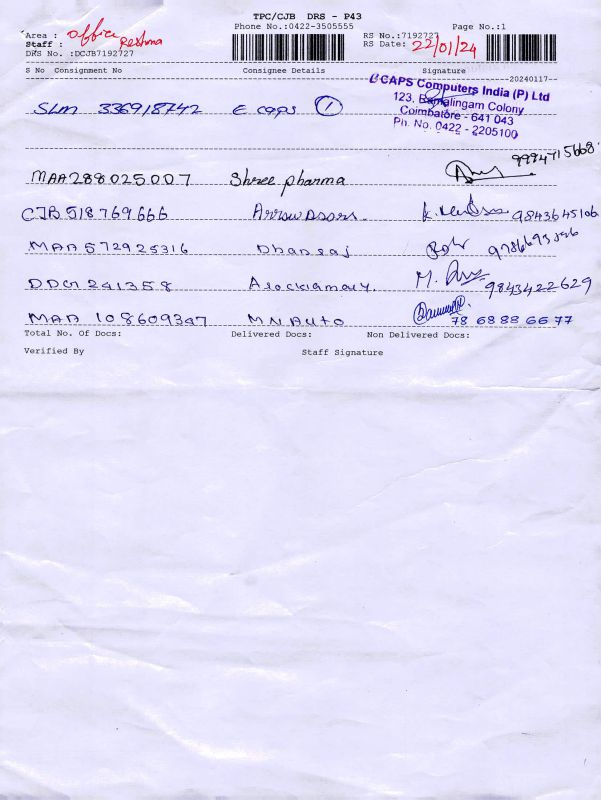 TPC/CJB DRS - P43
Phone No.:0422-3505555 Page No.:1
Area : office
Staff : Reshma
RS No.:7192727
RS Date: 22/01/24
DRS No. :DCJB7192727
S No Consignment No Consignee Details Signature
20240117
CAPS Computers India (P) Ltd
123, Ramalingam Colony
Coimbatore - 641 043
Ph. No. 0422 - 2205100
SLM 336918742 E caps 1
MAA288025007 Shree pharma 9994715668
CJB518769666 Arrow Doors. 9843645106
MAA572925316 Dhanraj
DDG241358 Arockiamary. M. 9843422629
MAA 108609347 MN Auto 78 68 88 66 77
Total No. Of Docs: Delivered Docs: Non Delivered Docs:
Verified By Staff Signature